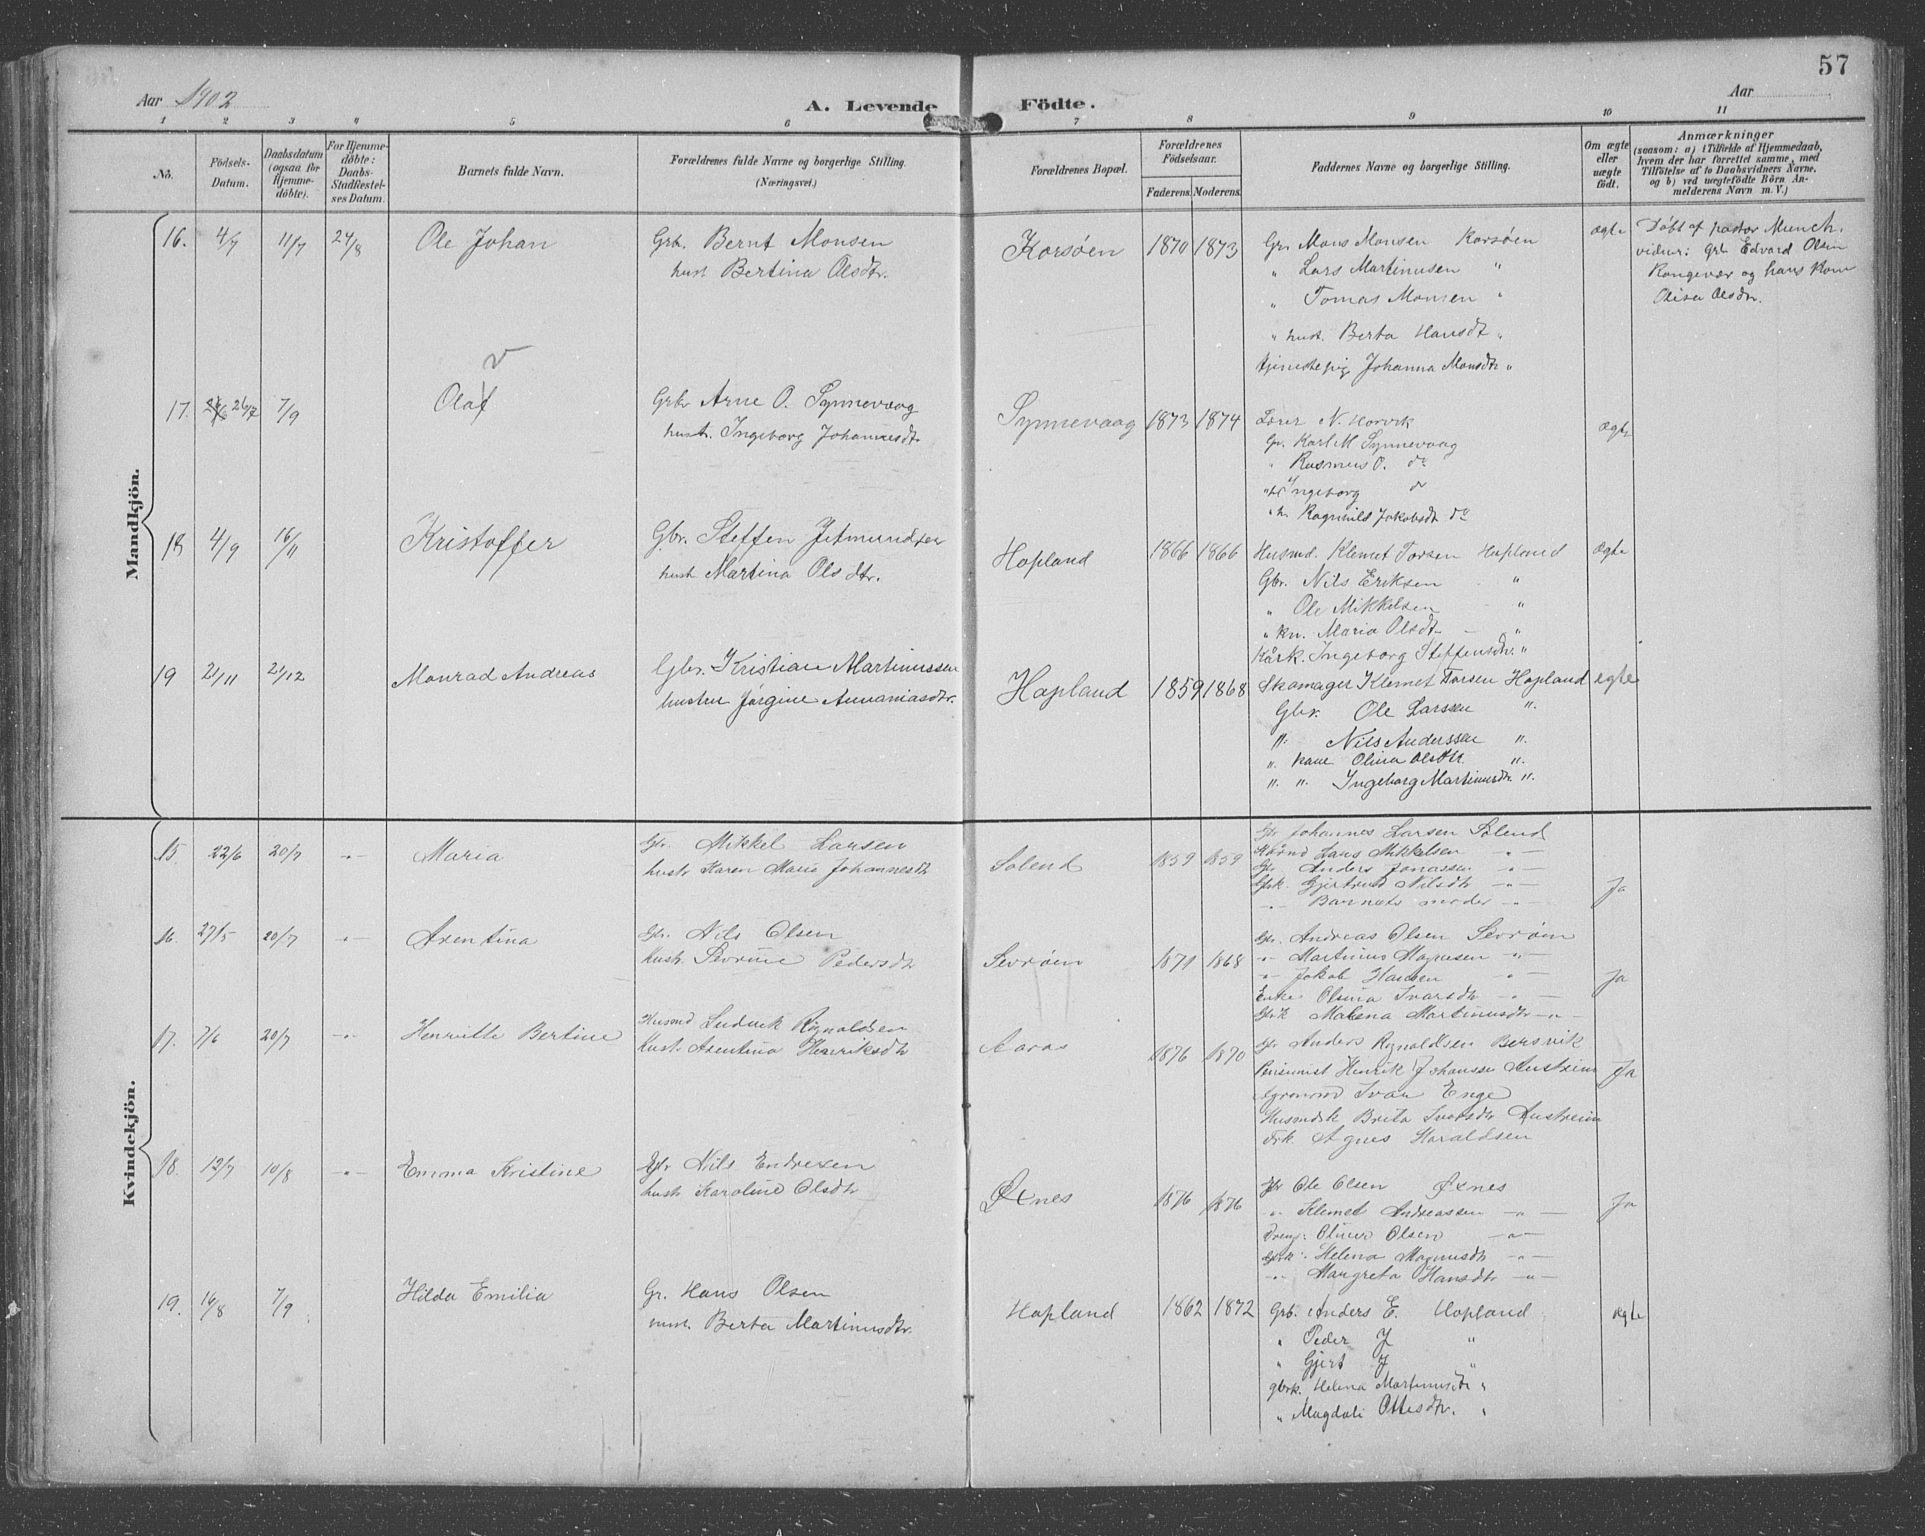 57
Aar 1902
A. Levende Födte.
Aar
1 2 3 4 5 6 7 8 9 10 11
No.
Födsels-Datum.
Daabsdatum (ogsaa for Hjemme-döbte).
For Hjemme-döbte: Daabs-Stadfæstel-ses Datum.
Barnets fulde Navn.
Forældrenes fulde Navne og borgerlige Stilling. (Næringsvei.)
Forældrenes Bopæl.
Forældrenes Födselsaar.
Faderens. Moderens.
Faddernes Navne og borgerlige Stilling.
Om ægte eller uægte födt.
Anmærkninger
(saasom: a) i Tilfælde af Hjemmedaab,
hvem der har forrettet samme, med
Tilföielse af to Daabsvidners Navne.
og b) ved uægtefödte Börn An-
melderens Navn m. V.)
Mandkjön.
16. 4/7 11/7 24/8 Ole Johan
Grb. Bernt Monsen
hust Bertina Olsdtr.
Korsøen 1870 1873
Gr. Mons Monsen Korsøen
" Lars Martinusen "
" Tomas Monsen "
" hust. Berta Hansdt "
tjenestepig Johanna Monsdtr "
ægte
Døbt af pastor Munch.
vidner: Grb Edvard Olsen
Rongevær og hans kone
Olina Olsdtr.
17. 26/7 7/9 Olaf
v
Grbr Arne O. Synnevaag
hustr. Ingeborg Johannesdtr
Synnevaag 1873 1874
Lærer N. Horvik
Gr. Karl M Synnevaag
" Rasmus O. do
Ingeborg do
" h. Ragnhild Jakobsdt do
ægte
18 4/9 16/11 Kristoffer
Gbr. Steffen Jetmundsen
hustr Martina Olsdtr.
Hopland 1866 1866
Husmd. Klemet Torsen Hopland
Gbr. Nils Eriksen "
" Ole Mikkelsen "
" kn. Maria Olsdtr "
Kårk. Ingeborg Steffensdtr. "
Ægte
19 21/11 21/12 Monrad Andreas
Gbr. Kristian Martinussen
hustru Jørgine Annaniasdtr.
Hopland 1859 1868
Skomager Klemet Torsen Hopland
Gbr. Ole Larssen "
" Nils Anderssen "
" kone Olina Olsdtr "
" " Ingeborg Martinusdtr "
egte
Kvindekjön.
15. 22/6 20/7 -"- Maria
Gbr. Mikkel Larsen
hustr Karen Marie Johannesdtr
Solend 1859 1859
Gbr Johannes Larsen Solend
Kårmd Lars Mikkelsen -"-
Gbr Anders Jonassen -"-
Gbrk. Gjertrud Nilsdtr -"-
-"- Barnets moder -"-
Ja
16. 27/5 20/7 -"- Axentina
Gbr. Nils Olsen
Hustr. Sevrine Pedersdtr
Sevrøen 1871 1868
Gbr. Andreas Olsen Sevrøen
-"- Martinus Magnesen -"-
-"- Jakob Hansen -"-
Enke Olina Ivarsdtr -"-
Gbrk Malena Martinusdtr -"-
Ja
17. 7/6 20/7 -"- Henriette Bertine
Husmd Ludvik Rognaldsen
Hustr. Axentina Henriksdtr
Aaras 1876 1870
Gbr Anders Rognaldsen Bersvik
Pensionist Henrik Johanssen Austreim
Ivar Enge
Husmdsk Brita Ivarsdtr Austreim
Frk. Agnes Haraldsen
Ja
18. 12/7 10/8 -"- Emma Kristine
Gbr Nils Endresen
hustr Karoline Olsdtr
Øxnes 1876 1876
Gbr Ole Olsen Øxnes
-"- Klemet Andreassen -"-
Dreng: Oliver Olsen -"-
Gbrk: Helena Magnusdtr -"-
-"- Margreta Hansdtr -"-
Ja
19. 16/8 7/9 Hilda Emilia
Gr. Hans Olsen
hust. Berta Martinusdtr.
Hopland 1862 1872
Grb. Anders E. Hopland
" Peder J "
" Gjert J "
gbrk. Helena Martinusdtr "
" Magdali Ottesdtr. "
ægte